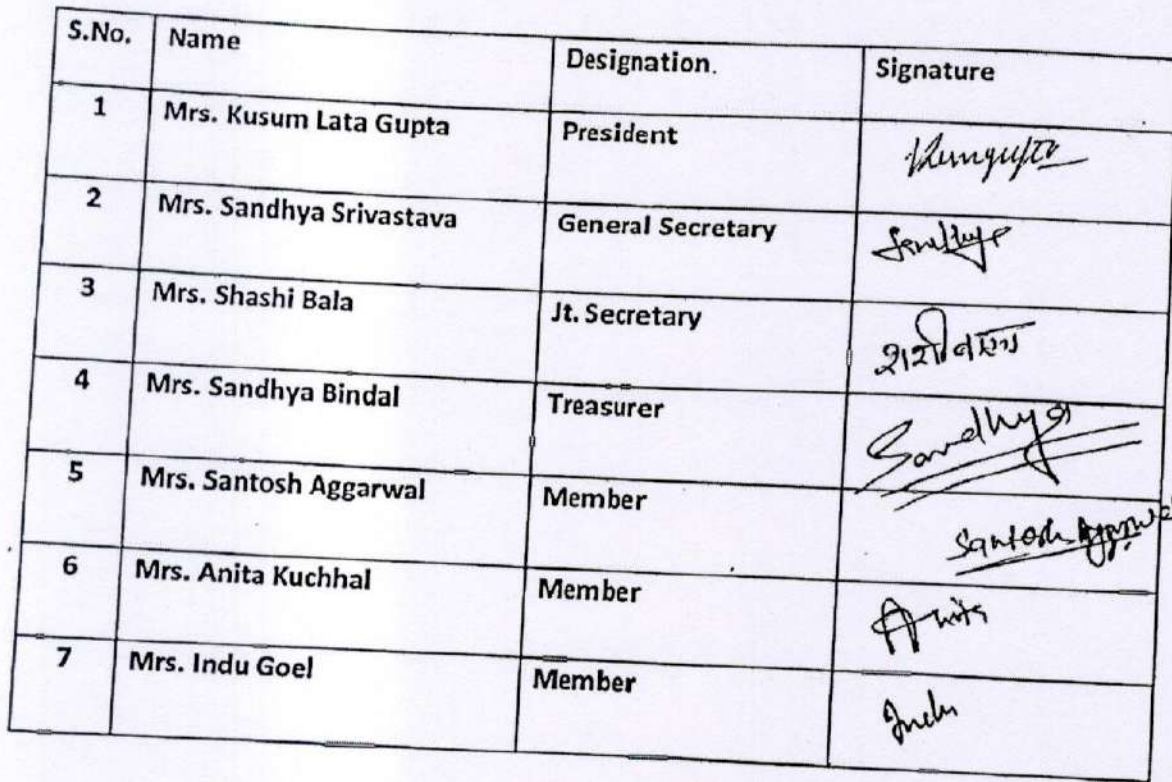 S.No. Name Designation. Signature
1 Mrs. Kusum Lata Gupta President
2 Mrs. Sandhya Srivastava General Secretary Sandhya
3 Mrs. Shashi Bala Jt. Secretary शशी बाला
4 Mrs. Sandhya Bindal Treasurer Sandhya
5 Mrs. Santosh Aggarwal Member Santosh
6 Mrs. Anita Kuchhal Member Anita
7 Mrs. Indu Goel Member Indu